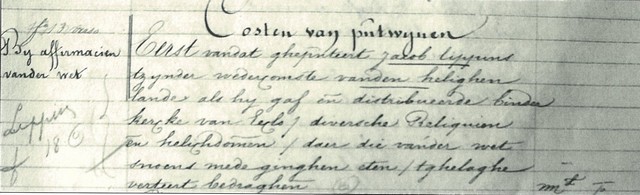 Costen van putwynen
By affirmacien
vander wet
Eerst vandat ghepnteert Jacob Lippins
tzynder wedercomste vanden helighen
lande als hy gaf en distribueerde binder
kercke van Exlo / diversche Reliquien
en helichdomen / daer die vander wet
snoens mede ginghen eten / tghelaghe
verteert bedraghen
Lippins